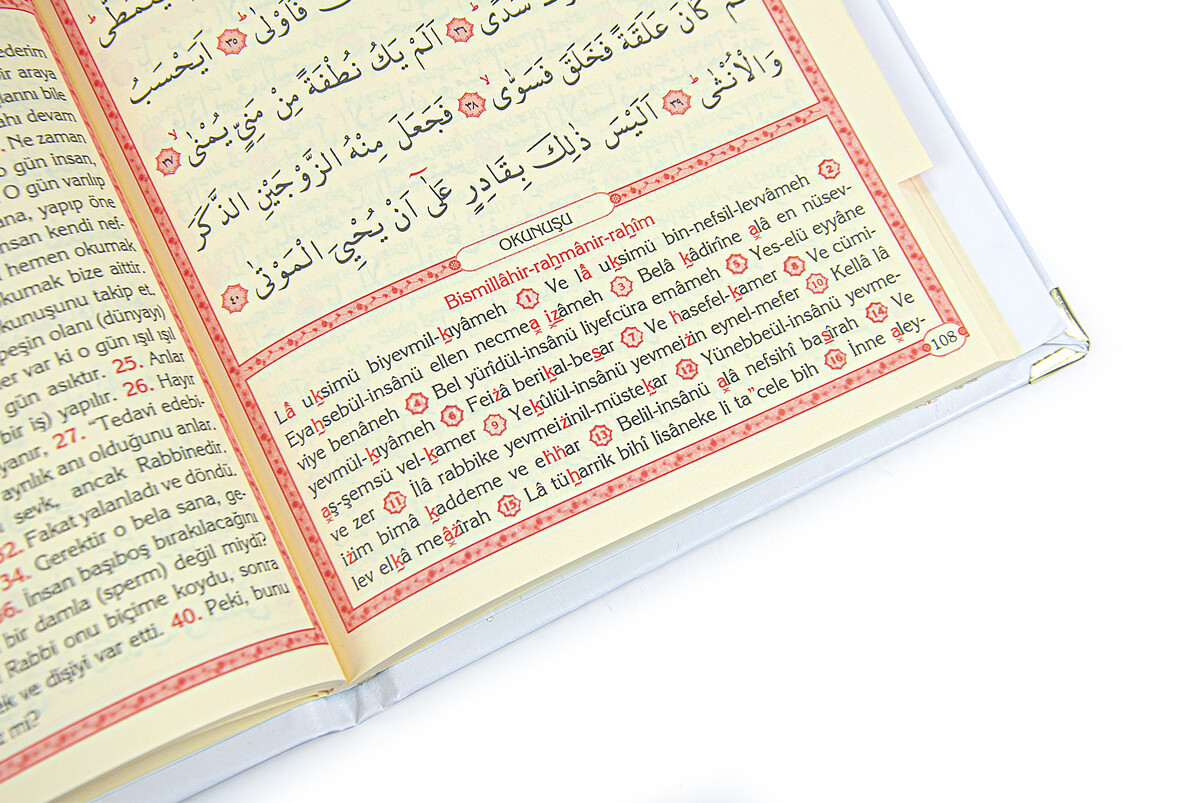 ederim
bir araya
larını bile
ahı devam
. Ne zaman
o gün insan,
O gün varılıp
ana, yapıp öne
insan kendi nef-
hemen okumak
kumak bize aittir.
kunuşunu takip et.
peşin olanı (dünyayı)
er var ki o gün ışıl ışıl
gün asıktır. 25. Anlar
bir iş) yapılır. 26. Hayır
yanır, 27. “Tedavi edebi-
ayrılık anı olduğunu anlar.
sevk, ancak Rabbinedir.
32. Fakat yalanladı ve döndü.
34. Gerektir o bela sana, ge-
36. İnsan başıboş bırakılacağını
bir damla (sperm) değil miydi?
Rabbi onu biçime koydu, sonra
ek ve dişiyi var etti. 40. Peki, bunu
mi?
فَاَوْلٰىۜ ﴿٣٥﴾ اَيَحْسَبُ
سُدًىۜ ﴿٣٦﴾ اَلَمْ يَكُ نُطْفَةً مِنْ مَنِيٍّ يُمْنٰىۙ ﴿٣٧﴾
كَانَ عَلَقَةً فَخَلَقَ فَسَوّٰىۙ ﴿٣٨﴾ فَجَعَلَ مِنْهُ الزَّوْجَيْنِ الذَّكَرَ
وَالْاُنْثٰىۜ ﴿٣٩﴾ اَلَيْسَ ذٰلِكَ بِقَادِرٍ عَلٰٓى اَنْ يُحْيِيَ الْمَوْتٰى ﴿٤٠﴾
OKUNUŞU
Bismillâhir-rahmânir-rahîm
Lâ uksimü biyevmil-kıyâmeh 1 Ve lâ uksimü bin-nefsil-levvâmeh 2
Eyahsebül-insânü ellen necmea izâmeh 3 Belâ kâdirîne alâ en nüsev-
viye benâneh 4 Bel yürîdül-insânü liyefcüra emâmeh 5 Yes-elü eyyâne
yevmül-kıyâmeh 6 Feiżâ berikal-besar 7 Ve hasefel-kamer 8 Ve cümi-
aş-şemsü vel-kamer 9 Yekûlül-insânü yevmeiżin eynel-mefer 10 Kellâ lâ
ve zer 11 İlâ rabbike yevmeiżinil-müstekar 12 Yünebbeül-insânü yevme-
iżim bimâ kaddeme ve ehhar 13 Belil-insânü alâ nefsihî basîrah 14 Ve
lev elkâ meâżîrah 15 Lâ tüharrik bihî lisâneke li ta”cele bih 16 İnne aley-
108